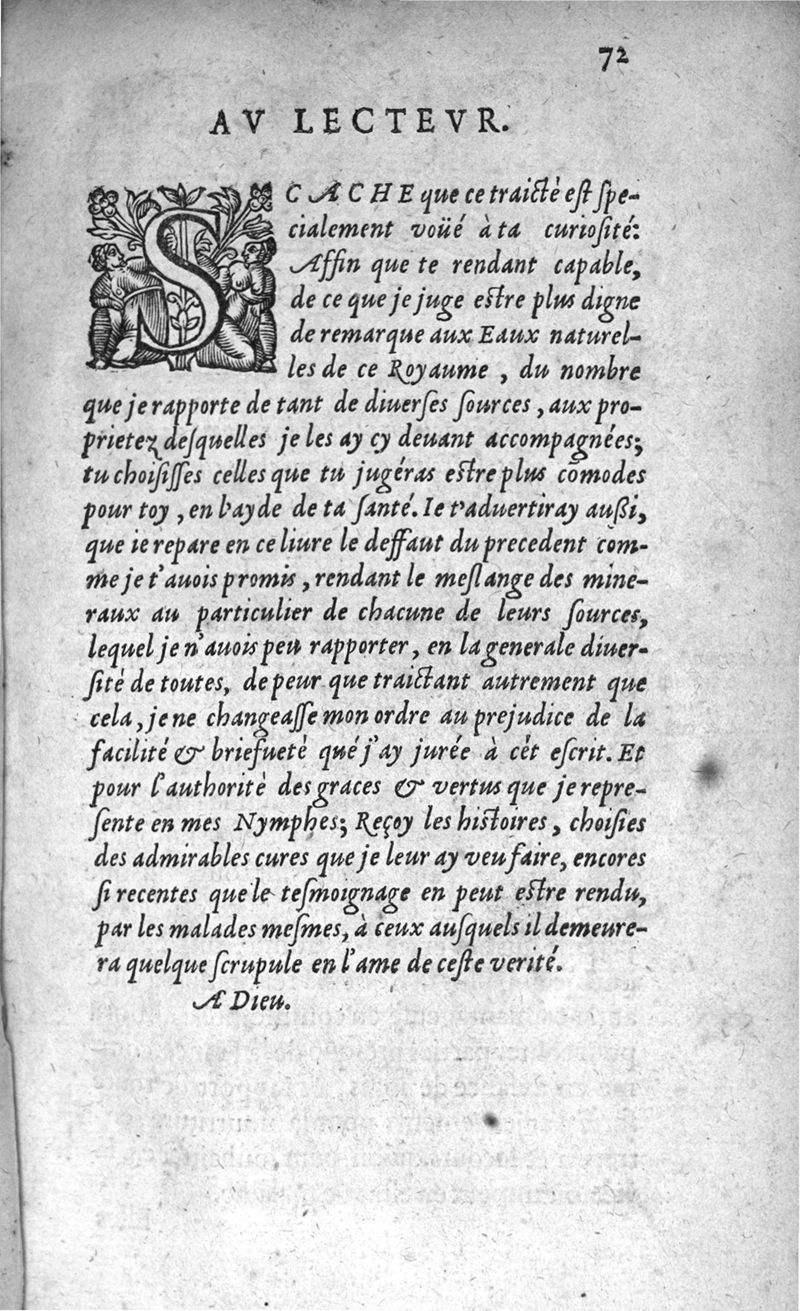 72
AV LECTEVR.
SCACHE que ce traictè est ſpe-
cialement voüé à ta curioſité:
Affin que te rendant capable,
de ce que je juge estre plus digne
de remarque aux Eaux naturel-
les de ce Royaume , du nombre
que je rapporte de tant de diuerſes ſources , aux pro-
prietez deſquelles je les ay cy deuant accompagnées;
tu choiſiſſes celles que tu jugéras estre plus cõmodes
pour toy , en l'ayde de ta ſanté. Ie t'aduertiray außi,
que ie repare en ce liure le deffaut du precedent com-
me je t'auois promis , rendant le meſlange des mine-
raux au particulier de chacune de leurs ſources,
lequel je n'auois peu rapporter , en la generale diuer-
ſité de toutes, de peur que traictant autrement que
cela , je ne changeaſſe mon ordre au prejudice de la
facilité & briefuetè qué j'ay jurée à cét eſcrit. Et
pour l'authoritè des graces & vertus que je repre-
ſente en mes Nymphes; Reçoy les histoires , choiſies
des admirables cures que je leur ay veu faire, encores
ſi recentes que le teſmoignage en peut estre rendu,
par les malades meſmes, à ceux auſquels il demeure-
ra quelque ſcrupule en l'ame de ceſte verité.
A Dieu.